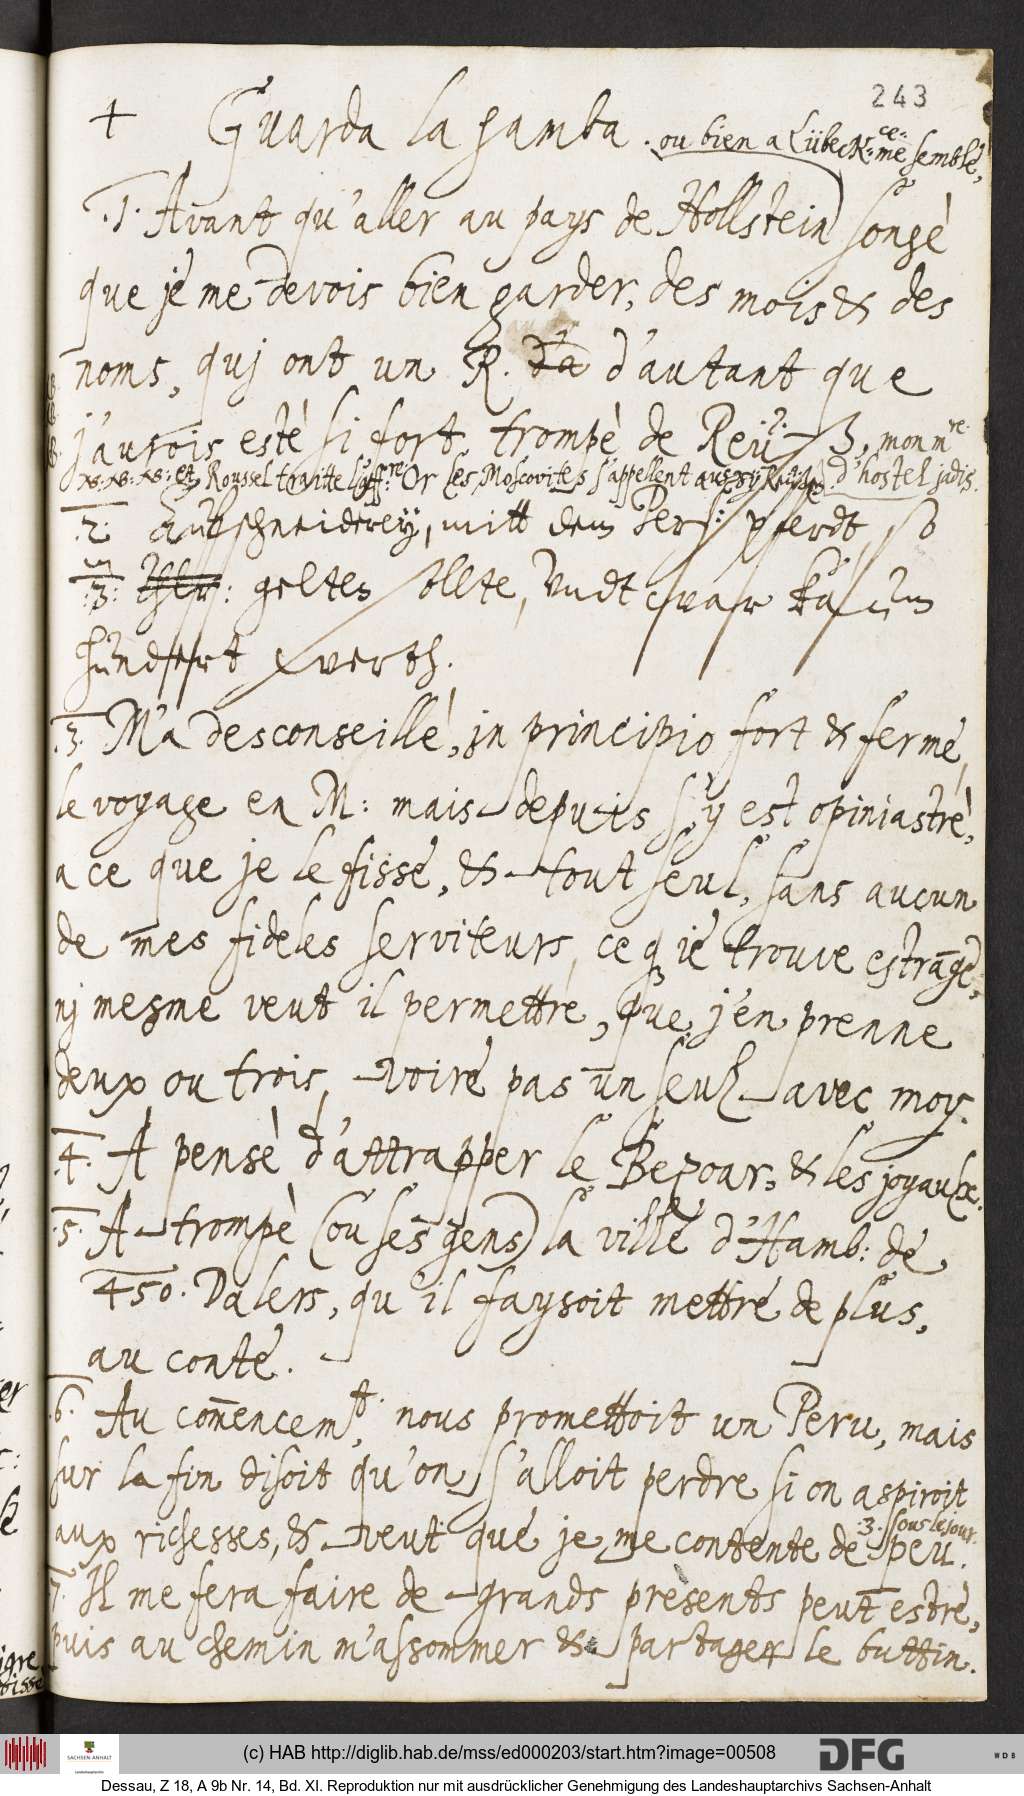 243
+ Guarda la gamba. ou bien a Lübeck: ce: me semble,
.1. Avant qu'aller au pays de Hollstein songè
que je me devois bien garder, des mois & des
noms, quj ont un R. d'a d'autant que
j'aurois estè si fort trompè de Reü 2. 3, mon m^re.
NB: NB: NB: et Roussel traitte l'aff^re: Or les Moscovites s'appellent aussy d'hostel jadis.
.2. Aufschneiderey, mitt dem Pers: pferdt, so
3: Thlr: geltes sollte, undt war kaum
hundert werth.
.3. M'a desconseillè, jn principio fort & ferme,
le voyage en M: mais depuis s'y est opiniastrè,
a ce que je le fisse, & tout seul, sans aucun
de mes fideles serviteurs, ce q je trouve estrāge,
nj mesme veut il permettre, que j'en prenne
deux ou trois, voire pas un seul avec moy.
.4. A pensè d'attrapper le Bezoar, & les joyaulx.
.5. A trompè (ou ses gens) la ville d'Hamb: de
450. Dalers, qu'il faysoit mettre de plus,
au conte.
.6. Au com̄encem^t., nous promettoit un Peru, mais
sur la fin disoit qu'on s'alloit perdre si on aspiroit
aux richesses, & veut que je me contente de .3. sous le jour. peu.
7. Il me fera faire de grands presents peut estre,
puis au chemin m'assommer & partager le buttin.
(c) HAB http://diglib.hab.de/mss/ed000203/start.htm?image=00508
SACHSEN-ANHALT
DFG
WDB
Dessau, Z 18, A 9b Nr. 14, Bd. XI. Reproduktion nur mit ausdrücklicher Genehmigung des Landeshauptarchivs Sachsen-Anhalt